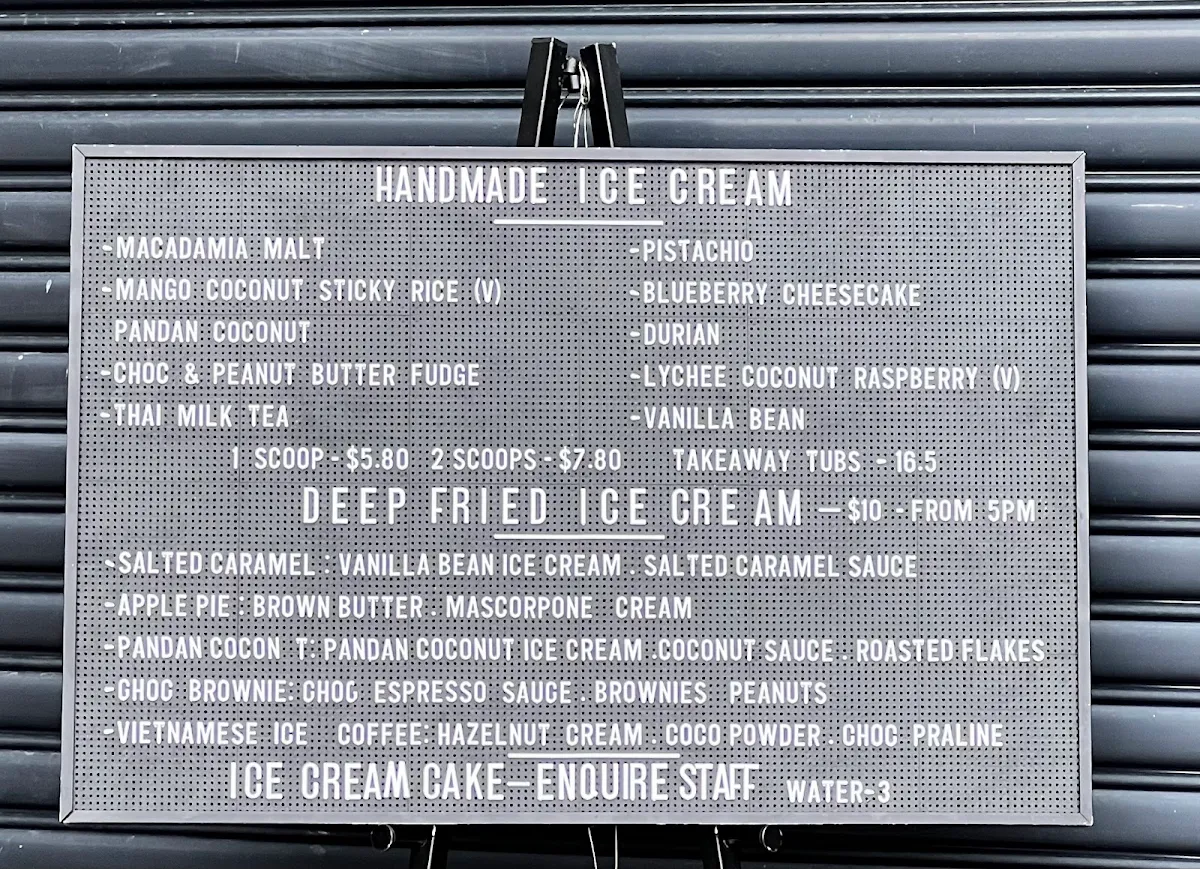 HANDMADE ICE CREAM
-MACADAMIA MALT
-MANGO COCONUT STICKY RICE (V)
PANDAN COCONUT
-CHOC & PEANUT BUTTER FUDGE
-THAI MILK TEA
-PISTACHIO
-BLUEBERRY CHEESECAKE
-DURIAN
-LYCHEE COCONUT RASPBERRY (V)
-VANILLA BEAN
1 SCOOP-$5.80 2 SCOOPS-$7.80 TAKEAWAY TUBS -16.5
DEEP FRIED ICE CREAM -$10 -FROM 5PM
-SALTED CARAMEL : VANILLA BEAN ICE CREAM . SALTED CARAMEL SAUCE
-APPLE PIE : BROWN BUTTER . MASCORPONE CREAM
-PANDAN COCON T: PANDAN COCONUT ICE CREAM .COCONUT SAUCE . ROASTED FLAKES
-CHOC BROWNIE: CHOC ESPRESSO SAUCE . BROWNIES PEANUTS
-VIETNAMESE ICE COFFEE: HAZELNUT CREAM . COCO POWDER . CHOC PRALINE
ICE CREAM CAKE-ENQUIRE STAFF WATER-3